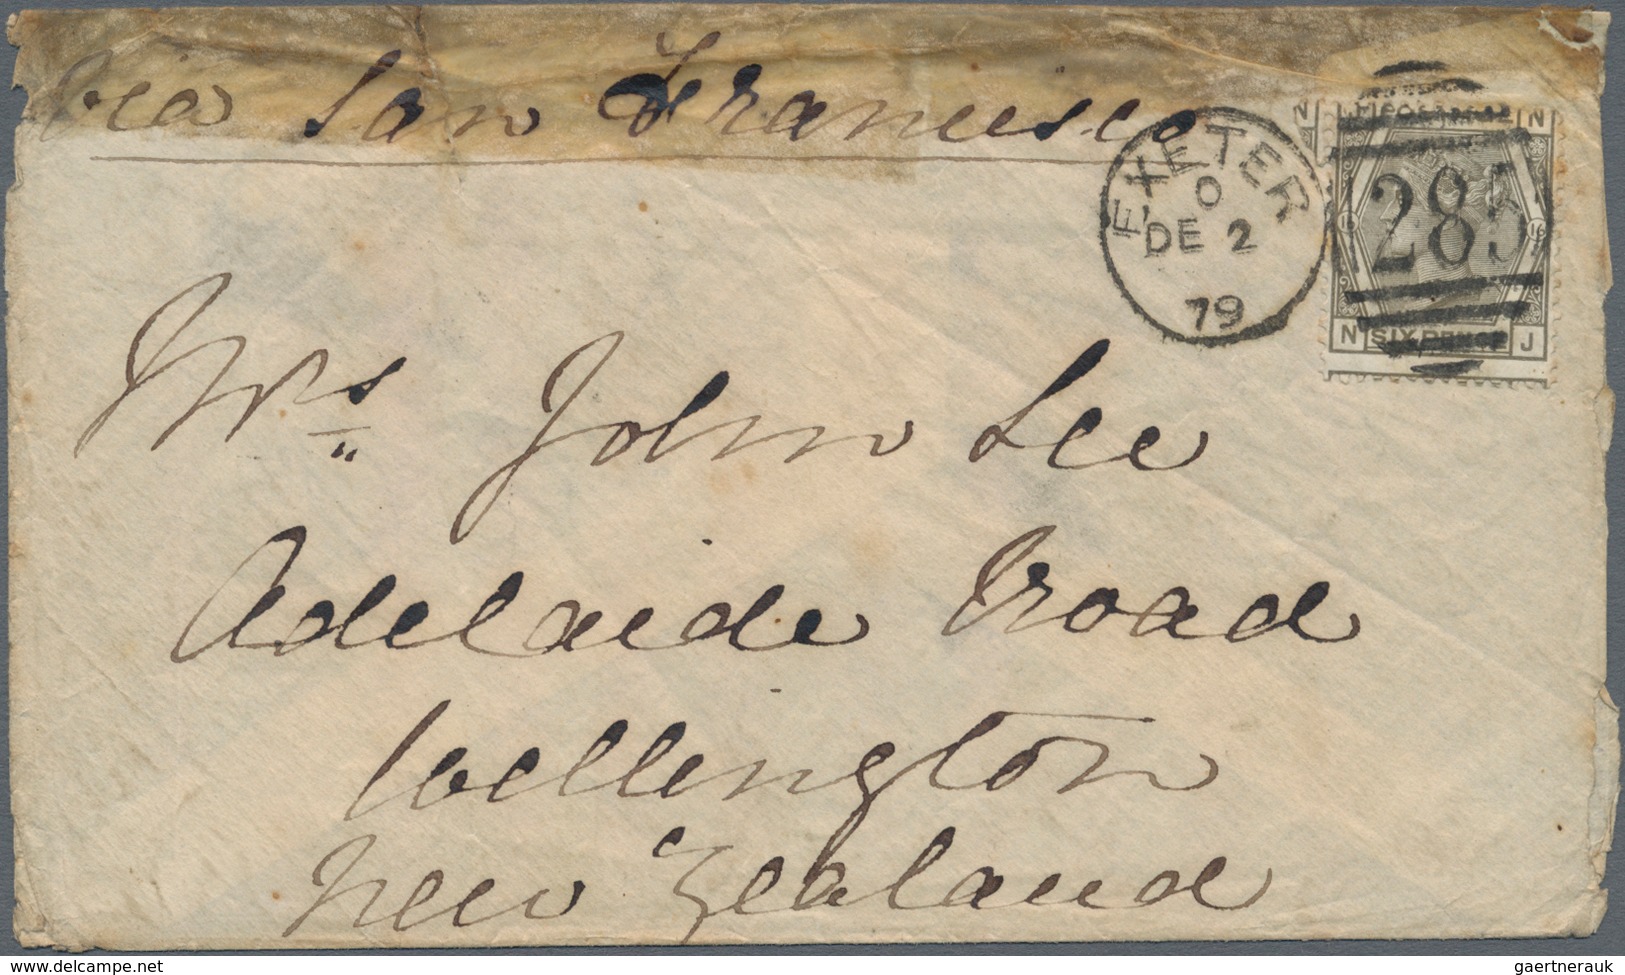 via San Francisco
EXETER
O
DE 2
79
285
N N
16
N SIX PENCE J
Mrs John Lee
Adelaide Road
Wellington
New Zealand
www.delcampe.net
gaertnerauk